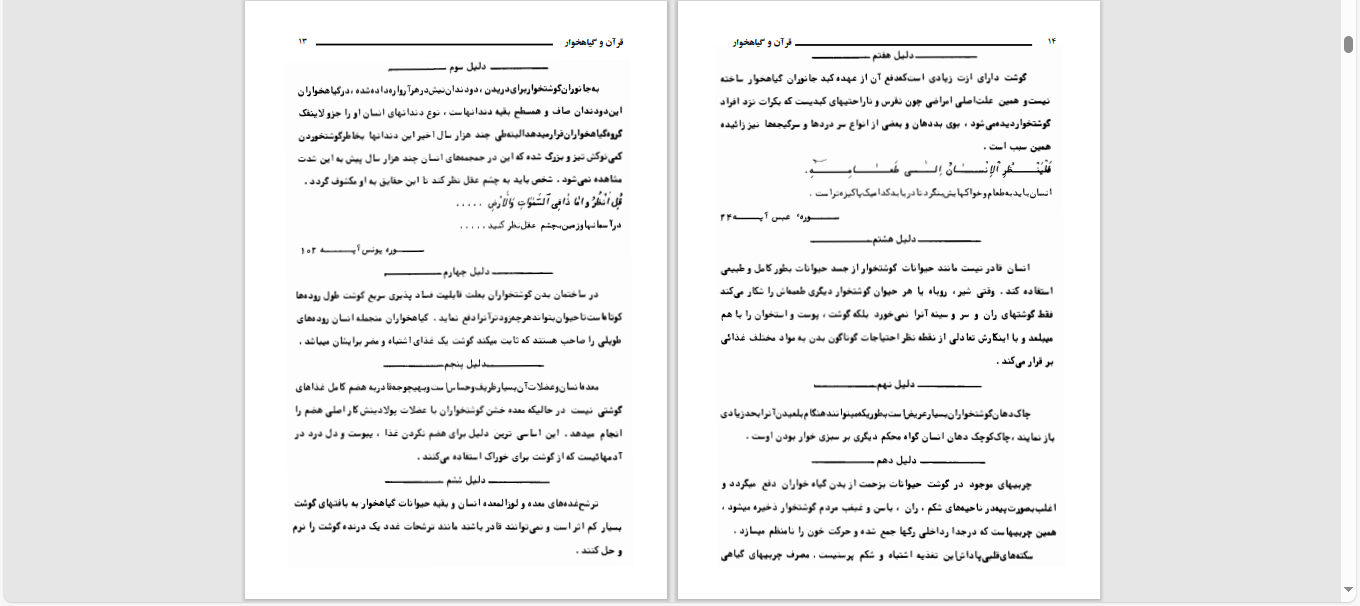 قرآن و گیاهخوار ۱۳
دلیل سوم
به‌جانوران‌گوشتخوار‌برای‌دریدن ، دو‌دندان‌نیش‌در‌هر‌آرواره‌داده‌شده ، در‌گیاهخواران
این‌دودندان صاف و همسطح بقیه دندانهاست ، نوع دندانهای انسان او را جزو لاینفک
گروه‌گیاهخواران‌قرار‌میدهد‌البته‌طی چند هزار سال اخیر این دندانها بخاطر‌گوشتخوردن
کمی‌نوکش تیز و بزرگ شده که این در جمجمه‌های انسان چند هزار سال پیش به این شدت
مشاهده نمی‌شود . شخص باید به چشم عقل نظر کند تا این حقایق به او مکشوف گردد .
قُلِ انْظُرُوا ماذا فِی السَّمٰوٰاتِ وَالْأَرْضِ . . . . .
در‌آسمانها‌و‌زمین‌بچشم عقل‌نظر کنید . . . . .
سوره یونس آیه ۱۰۲
دلیل چهارم
در ساختمان بدن گوشتخواران بعلت قابلیت فساد پذیری سریع گوشت طول روده‌ها
کوتاه‌است‌تا‌حیوان‌بتواند‌هرچه‌زودتر‌آنرا‌دفع نماید . گیاهخواران منجمله انسان روده‌های
طویلی را صاحب هستند که ثابت میکند گوشت یک غذای اشتباه و مضر برایشان میباشد .
دلیل پنجم
معده‌انسان‌و‌عضلات‌آن‌بسیار‌ظریف‌و‌حساس‌است‌و‌بهیچوجه‌قادر‌به هضم کامل غذاهای
گوشتی نیست در حالیکه معده خشن گوشتخواران با عضلات پولادینش کار اصلی هضم را
انجام میدهد . این اساسی ترین دلیل برای هضم نکردن غذا ، یبوست و دل درد در
آدمهائیست که از گوشت برای خوراک استفاده می‌کنند .
دلیل ششم
ترشح‌غده‌های معده و لوزالمعده انسان و بقیه حیوانات گیاهخوار به بافتهای گوشت
بسیار کم اثر است و نمی‌توانند قادر باشند مانند ترشحات غدد یک درنده گوشت را نرم
و حل کنند .
۱۴ قرآن و گیاهخوار
دلیل هفتم
گوشت دارای ازت زیادی است‌که‌دفع آن از عهده کبد جانوران گیاهخوار ساخته
نیست‌و همین علت‌اصلی امراضی چون نقرس و ناراحتیهای کبدیست که بکرات نزد افراد
گوشتخوار‌دیده‌می‌شود ، بوی بد‌دهان و بعضی از انواع سر دردها و سرگیجه‌ها نیز زائیده
همین سبب است .
فَلْیَنْظُرِ الْإِنْسانُ إِلیٰ طَعامِهِ .
انسان‌باید‌به‌طعام‌و‌خواکهایش‌بنگرد‌تا‌دریابد‌کدامیک‌پاکیزه‌تر‌است .
سوره عبس آیه ۲۴
دلیل هشتم
انسان قادر نیست مانند حیوانات گوشتخوار از جسد حیوانات بطور کامل و طبیعی
استفاده کند . وقتی شیر ، روباه یا هر حیوان گوشتخوار دیگری طعمه‌اش را شکار می‌کند
فقط گوشتهای ران و سر و سینه آنرا نمی‌خورد بلکه گوشت ، پوست و استخوان را با هم
میبلعد و با اینکارش تعادلی از نقطه نظر احتیاجات گوناگون بدن به مواد مختلف غذائی
بر قرار می‌کند .
دلیل نهم
چاک‌دهان‌گوشتخواران‌بسیار‌عریض‌است‌بطوریکه‌میتوانند‌هنگام‌بلعیدن‌آنرا‌بحد‌زیادی
باز نمایند ، چاک‌کوچک دهان انسان گواه محکم دیگری بر سبزی خوار بودن اوست .
دلیل دهم
چربیهای موجود در گوشت حیوانات بزحمت از بدن گیاه خواران دفع میگردد و
اغلب‌بصورت‌پیه‌در ناحیه‌های شکم ، ران ، باسن و غبغب مردم گوشتخوار ذخیره میشود ،
همین چربیهاست که درجدار‌داخلی رگها جمع شده و حرکت خون را نامنظم میسازد .
سکته‌های‌قلبی‌پاداش‌این تغذیه اشتباه و شکم پرستیست . مصرف چربیهای گیاهی